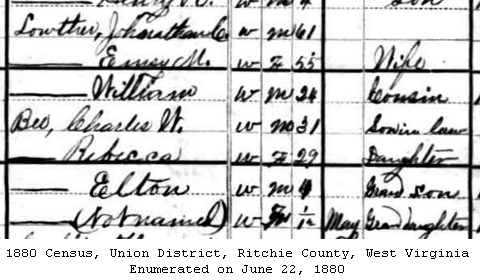 Henry W M 4 Son
Lowther, Johnathan C. W M 61
—— Emsy M. W F 55 Wife
—— William W M 24 Cousin
Bee, Charles W. W M 31 Son in law
—— Rebecca W F 29 Daughter
—— Elton W M 4 Grand son
—— (Not named) W F 1/12 May Granddaughter
1880 Census, Union District, Ritchie County, West Virginia
Enumerated on June 22, 1880